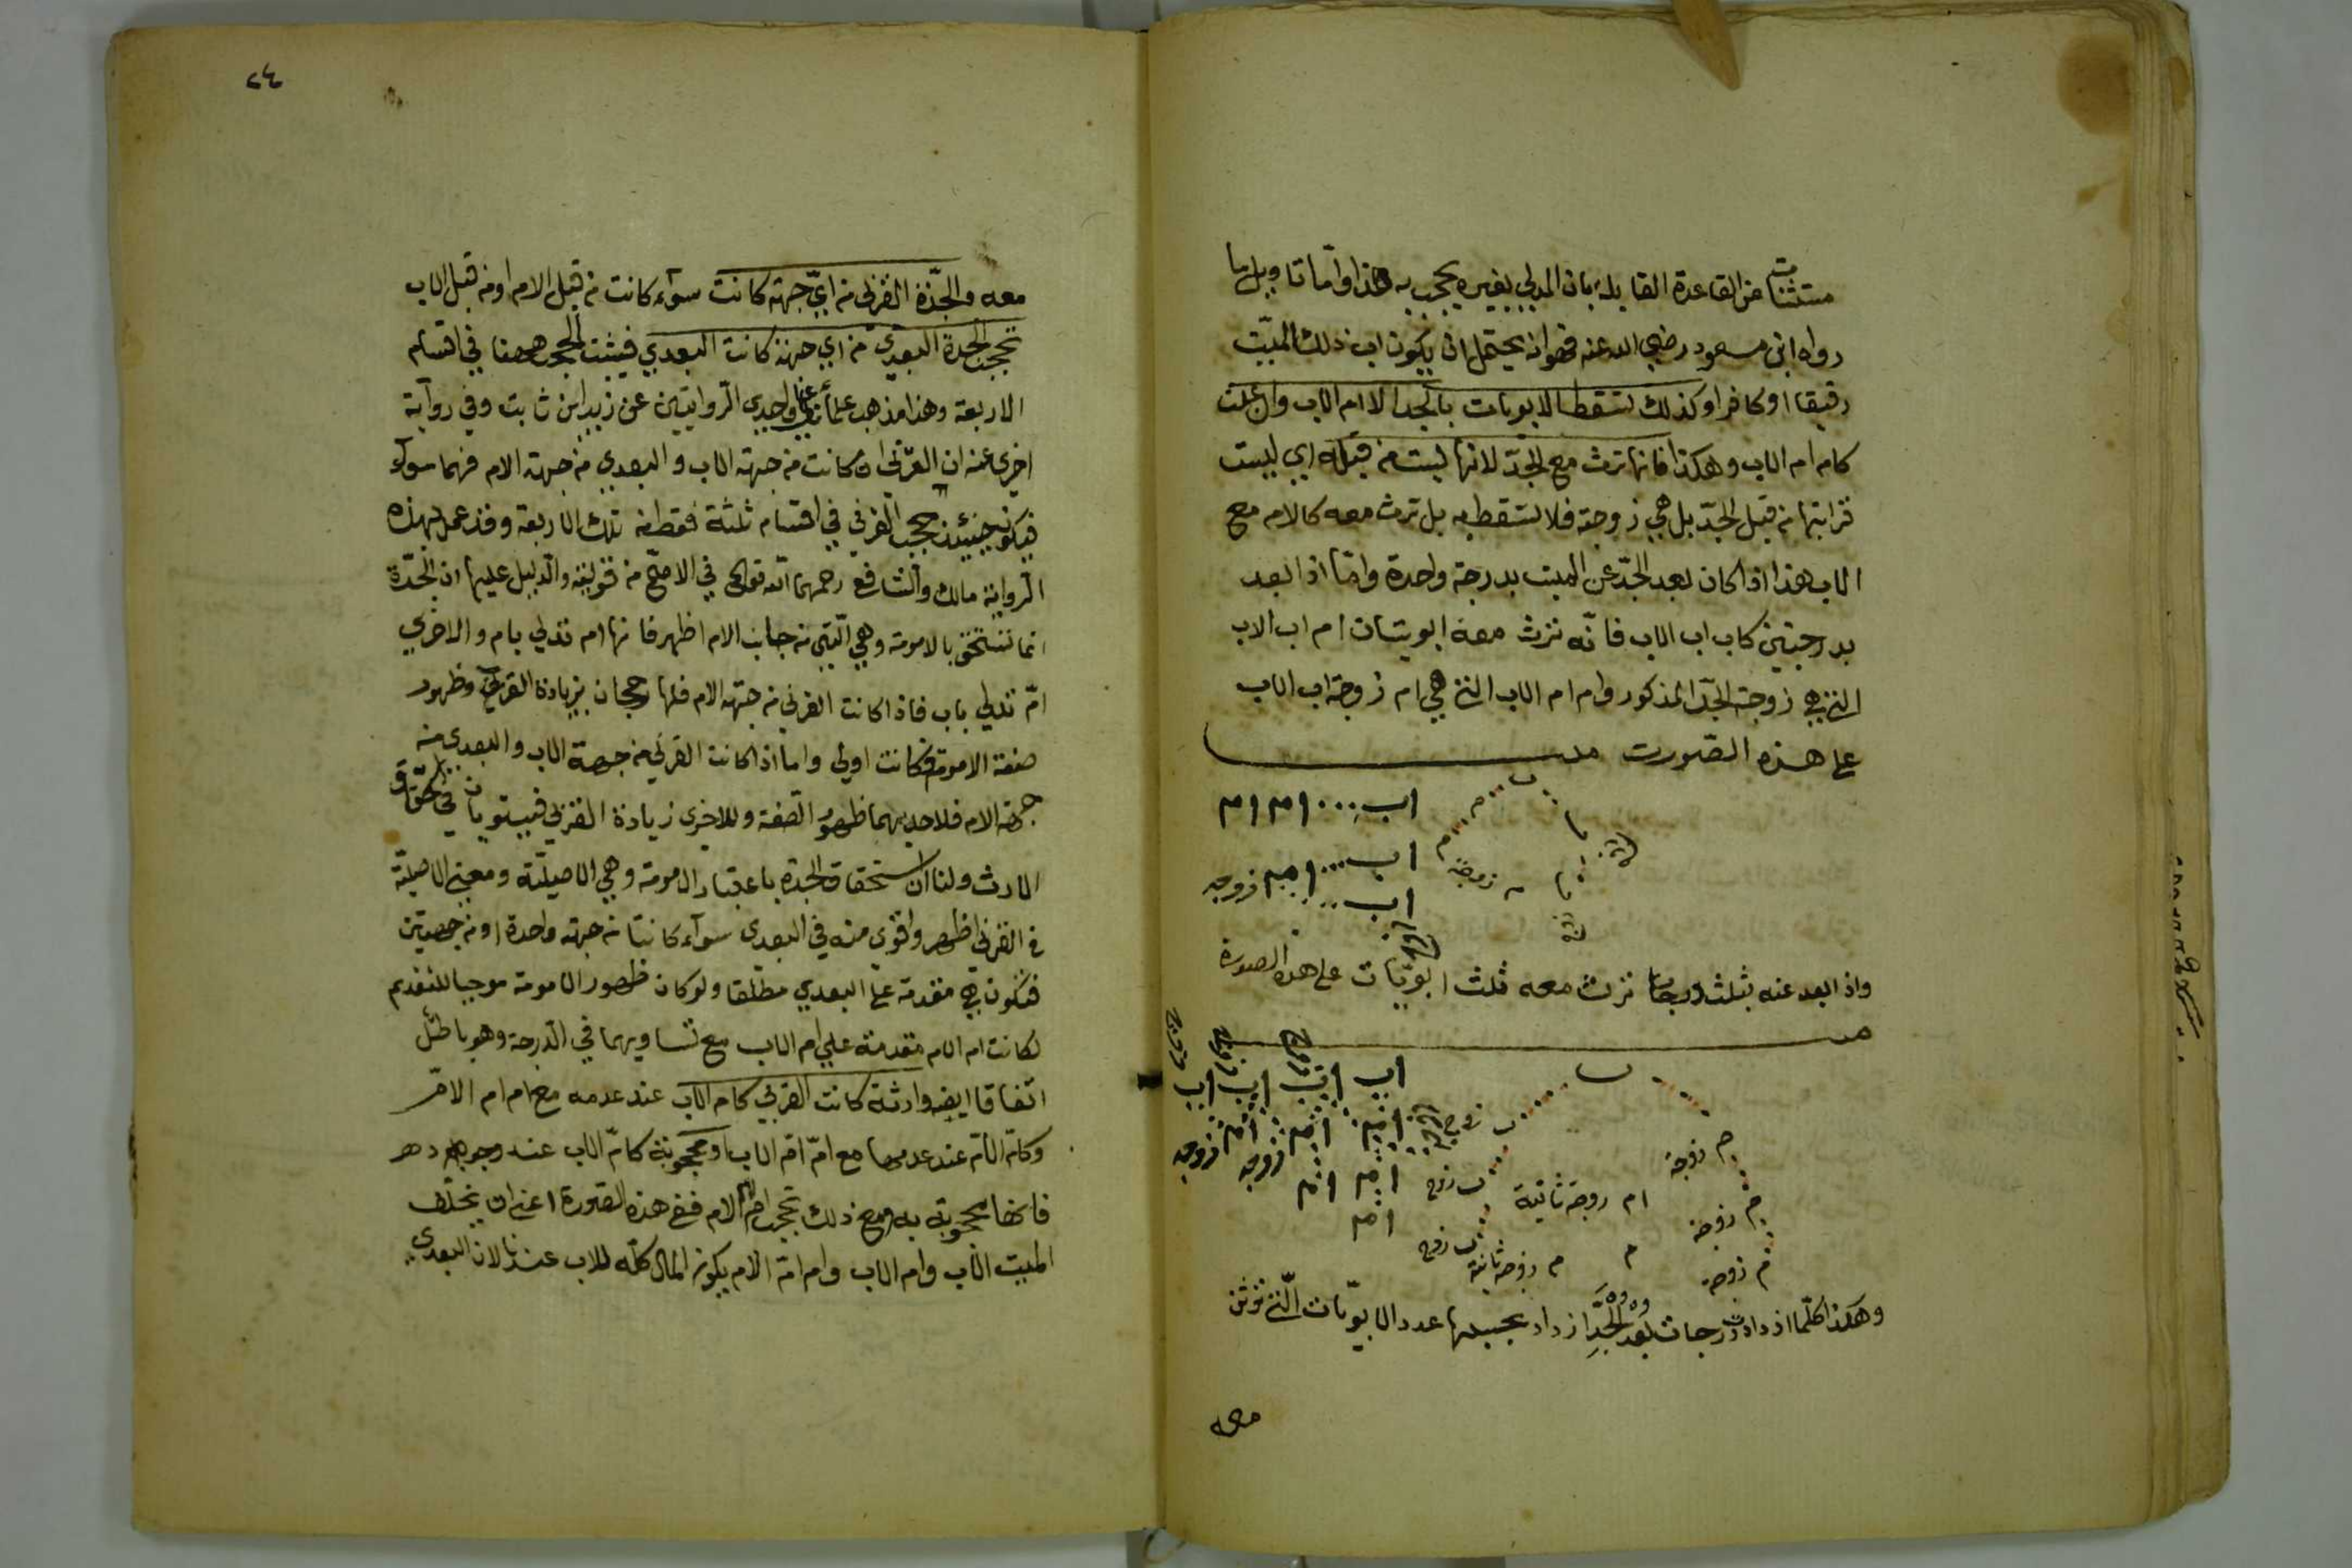 مستثنات عن القاعدة القايلة بان المدلي بغيره يحجب به هذا واما تاويل ما
رواه ابن مسعود رضي الله عنه فهو انه يحتمل ان يكون اب ذلك الميّت
رقيقا او كافرا وكذلك تسقط الابويات بالجد الا ام الاب وان علت
كام ام الاب وهكذا فانها ترث مع الجدّ لانها ليست من قبله اي ليست
قرابتها من قبل الجدّ بل هي زوجة فلا تسقط به بل ترث معه كالام مع
الاب هذا اذا كان بعد الجدّ عن الميت بدرجة واحدة وامّا اذا بعد
بدرجتين كاب اب الاب فانّه ترث معه ابويتان ام اب الاب
التي هي زوجة الجدّ المذكور وام ام الاب التي هي ام زوجة اب الاب
على هذه الصّورت
اب ام ام
اب ام زوجه
اب
واذا بعد عنه بثلث درجات ترث معه ثلث ابويّات على هذه الصورة
اب اب اب اب
ام ام ام زوجه
ام ام زوجه
ام
م زوجة
ام زوجة ثانية
م زوجة
م زوجة ثانية
م زوجة
وهكذا كلّما ازدادت درجات بعد الجدّ ازداد بحسبها عدد الابويّات التي ترثن
معه
٢٤
معه والجدّة القربى من ايّ جهة كانت سوآء كانت من قبل الام او من قبل الاب
تحجب الجدة البعدى من اي جهة كانت البعدي فيثبت الحجب ههنا في اقسام
الاربعة وهذا مذهب علمائنا واحدى الرّوايتين عن زيد ابن ثابت وفي رواية
اخرى عنه ان القربى ان كانت من جهة الاب والبعدى من جهة الام فهما سوآء
فيكون حينئذ حجب القربى في اقسام ثلثة فقط من تلك الاربعة وقد عمل بهذه
الرواية مالك والشافع رحمهما الله تعالى في الاصحّ من قوليه والدليل عليها ان الجدّة
انما تستحق بالامومة وهي الّتي من جانب الام اظهر فانها ام تدلي بام والاخرى
امّ تدلي باب فاذا كانت القربى من جهة الام فلها رجحان بزيادة القربى وظهور
صفة الامومة فكانت اولى واما اذا كانت القربى من جهة الاب والبعدى من
جهة الام فلاحديهما ظهور الصفة وللاخرى زيادة القربى فيستويان في استحقاق
الارث ولنا ان استحقاق الجدة باعتبار الامومة وهي الاصليّة ومعنى الاصليّة
في القربى اظهر واقوى منه في البعدى سوآء كانتا من جهة واحدة او من جهتين
فتكون هي مقدمة على البعدي مطلقا ولو كان ظهور الامومة موجبا للتقديم
لكانت ام الام مقدمة على ام الاب مع تساويهما في الدرجة وهو باطل
اتفاقا ايضا وارثة كانت القربى كام الاب عند عدمه مع ام ام الامّ
وكامّ الامّ عند عدمها مع امّ امّ الاب او محجوبة كامّ الاب عند وجوده
فانها محجوبة به ومع ذلك تحجب ام ام الام ففي هذه الصّورة اعني ان يخلّف
الميت الاب وام الاب وام امّ الام يكون المال كلّه للاب عندنا لان البعدى